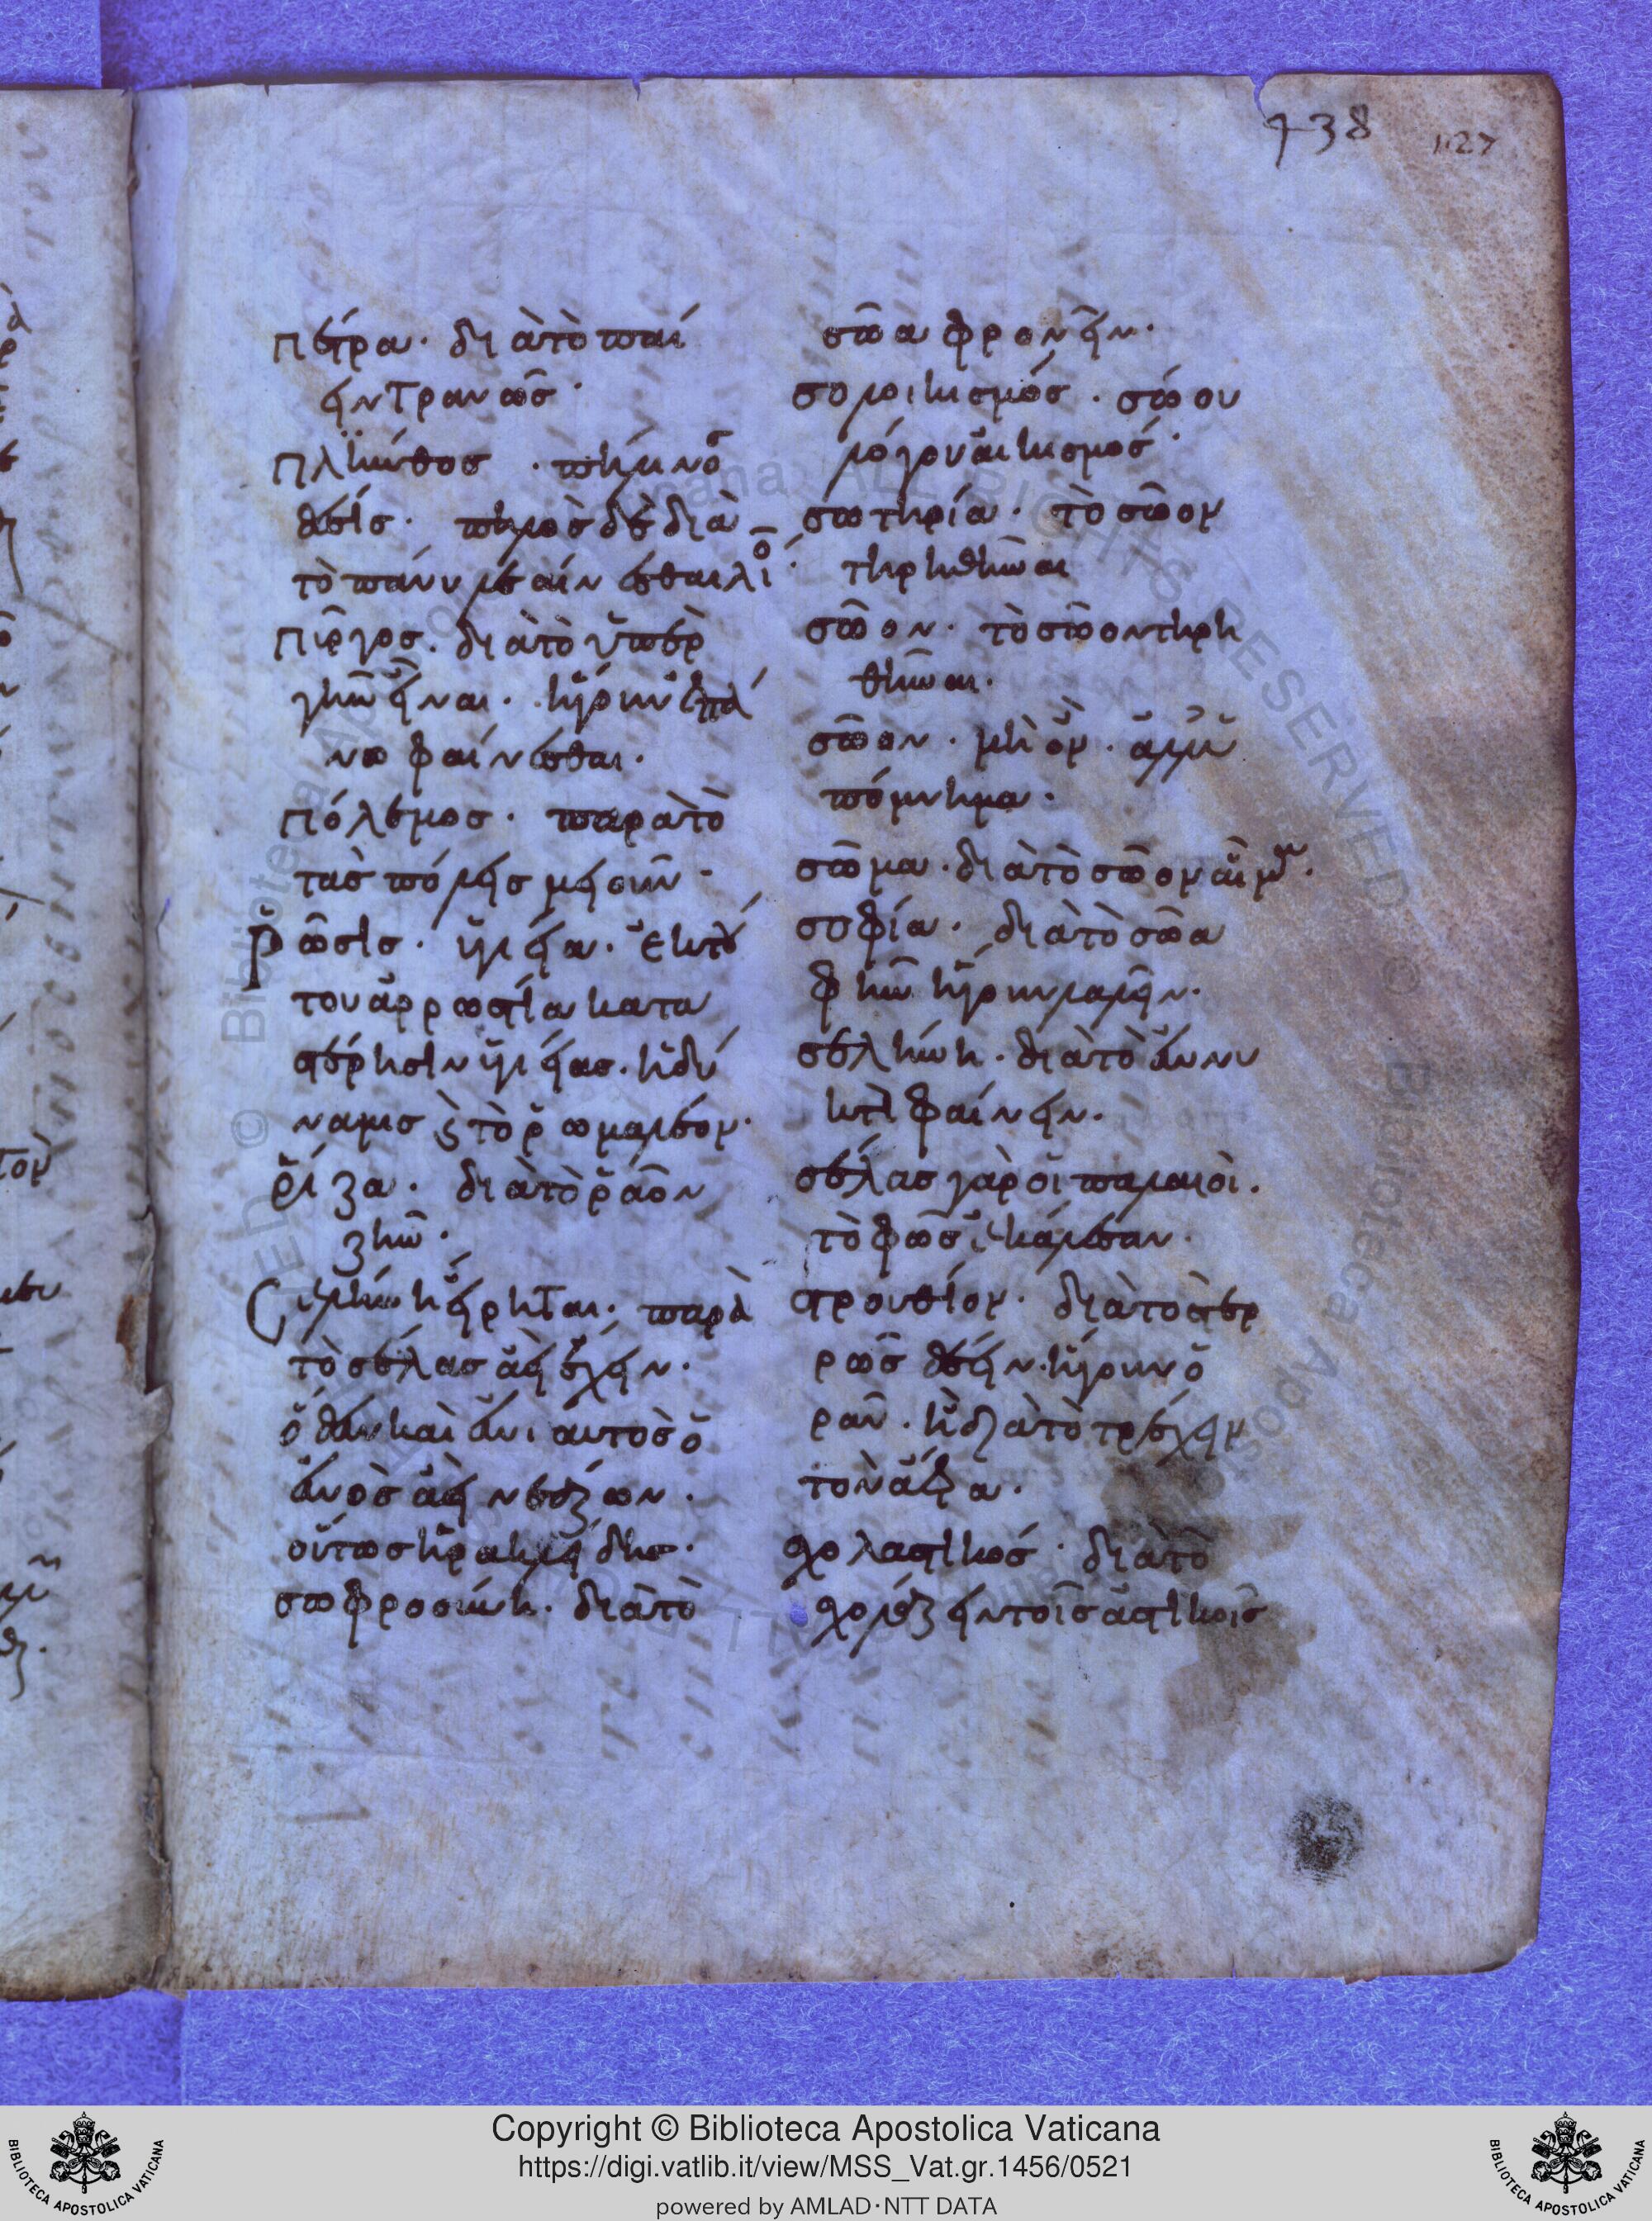 738 1127
πέτρα· διὰτὸ παί
ειν τρανῶσ·
πλίνθοσ ·πηλινο
θεσίσ· πηλὸσ δὲ διὰ
τὸ πάνυ λεαίνεσθαι λί
πύργοσ· διὰτὸ ὑπὲρ
γῆν εἶναι· ἤγουν ἐπά
νω φαίνεσθαι·
πόλεμοσ· παρὰτὸ
τὰσ πόλεισ μειοῦν·
ῥῶσισ· ὑγιεία· ἐκ τό
του ἀρρωστία κατα
στέρησιν ὑγιείασ· ἢ δύ
ναμισ τὸ ῥωμαλέον·
ῥίζα· διὰτὸ ῥᾶον
ζῆν·
Σελήνη εἴρηται· παρὰ
τὸ σέλασ ἀεὶ ἔχειν·
ὅθεν καὶ ἐνιαυτοσ ὁ
ἔνοσ ἀεὶ νεάζων·
οὕτωσ ἡρακλείδησ·
σωφροσύνη· διὰτὸ
σῶα φρονεῖν·
σολοικισμόσ· σώου
λόγου αἰκισμοσ·
σωτηρία· τὸ σῶον
τηρηθῆναι
σῶον· τὸ σῶον τηρη
θῆναι·
σῶμα· διὰτὸ σῶον
σοφία· διὰτὸ σῶα
φῆν ἤγουν λαλεῖν·
σελήνη· διὰτὸ ἐννυ
κτὶ φαίνειν·
σέλασ γὰρ οἱ παλαιοὶ·
τὸ φῶσ ἐκάλεσαν·
στρουθίον· διὰτο στερ
ρῶσ θέειν· ἤγουν ὁ
ρᾶν· ἢ διὰτὸ τρέχειν
τὸν ἀέρα·
σχολαστικόσ· διὰτὸ
σχολάζειν τοῖσ ἀστικοῖσ
Copyright © Biblioteca Apostolica Vaticana
https://digi.vatlib.it/view/MSS_Vat.gr.1456/0521
powered by AMLAD·NTT DATA
BIBLIOTECA APOSTOLICA VATICANA
BIBLIOTECA APOSTOLICA VATICANA